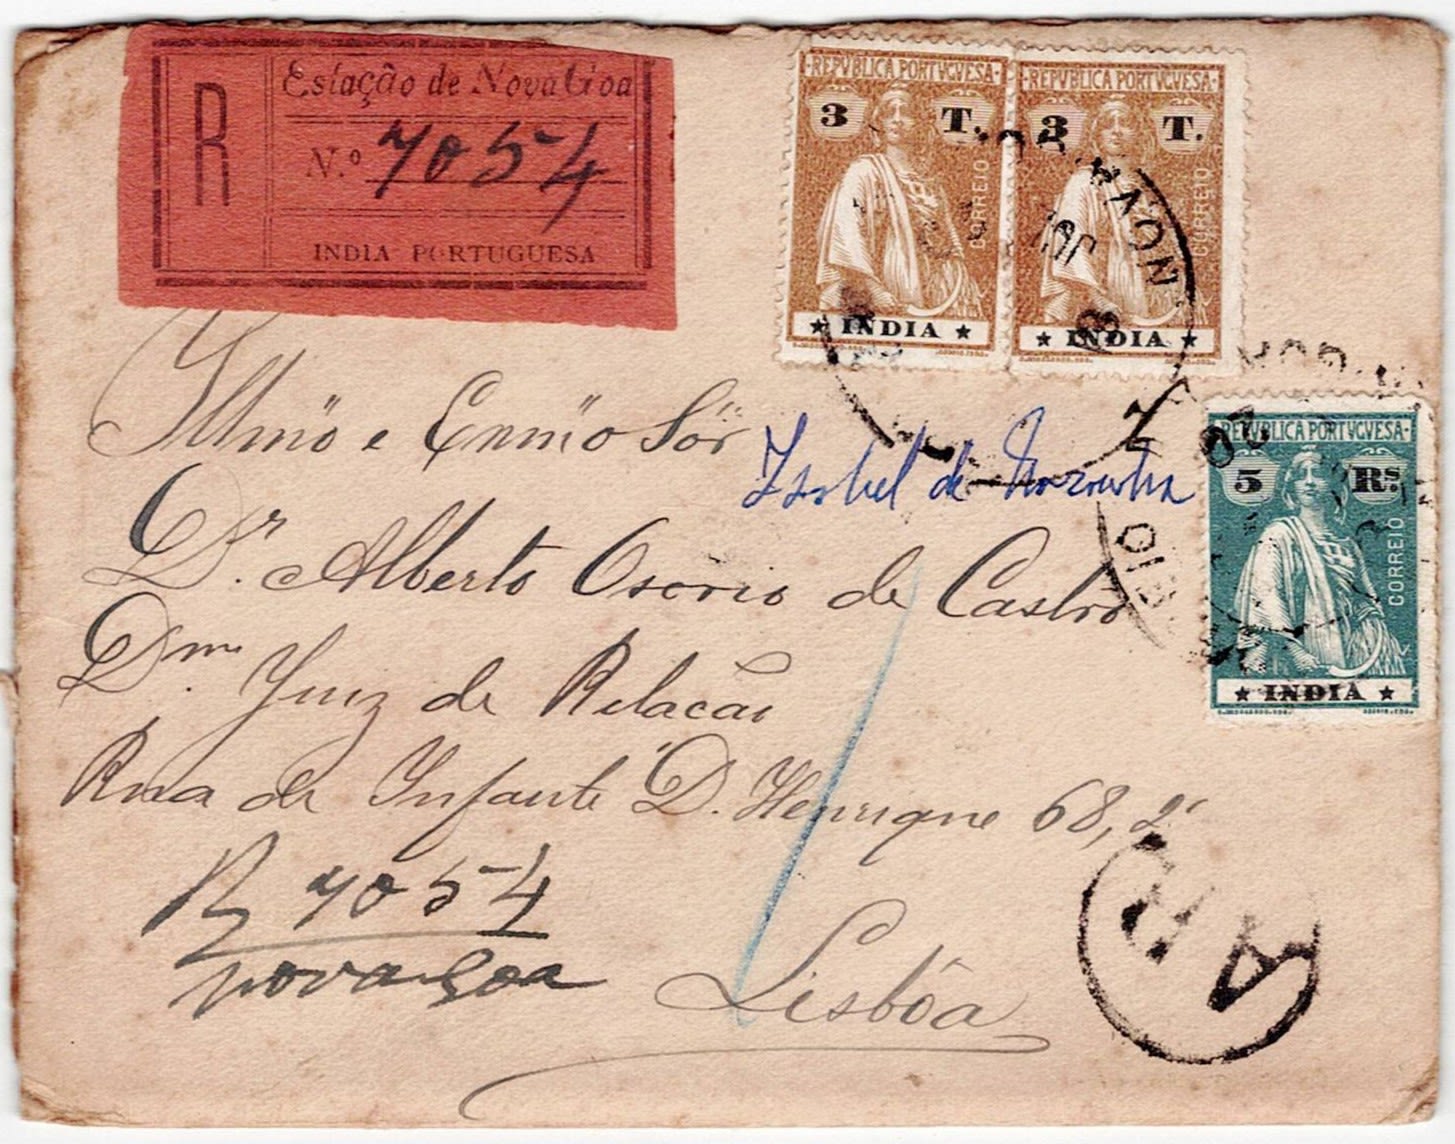 R
Estação de Nova Goa
N.º 7054
INDIA PORTUGUESA
REPVBLICA PORTVGVESA
3 T.
CORREIO
★ INDIA ★
REPVBLICA PORTVGVESA
3 T.
CORREIO
★ INDIA ★
NOVA GOA
REPVBLICA PORTVGVESA
5 Rs
CORREIO
★ INDIA ★
Illmo e Exmmo Sôr
Isabel de Noronha
Dr. Alberto Osorio de Castro
Dmo Juiz de Relacão
Rua de Infante D. Henrique 68, 2º
R 7054
nova Goa
Lisbôa
AR